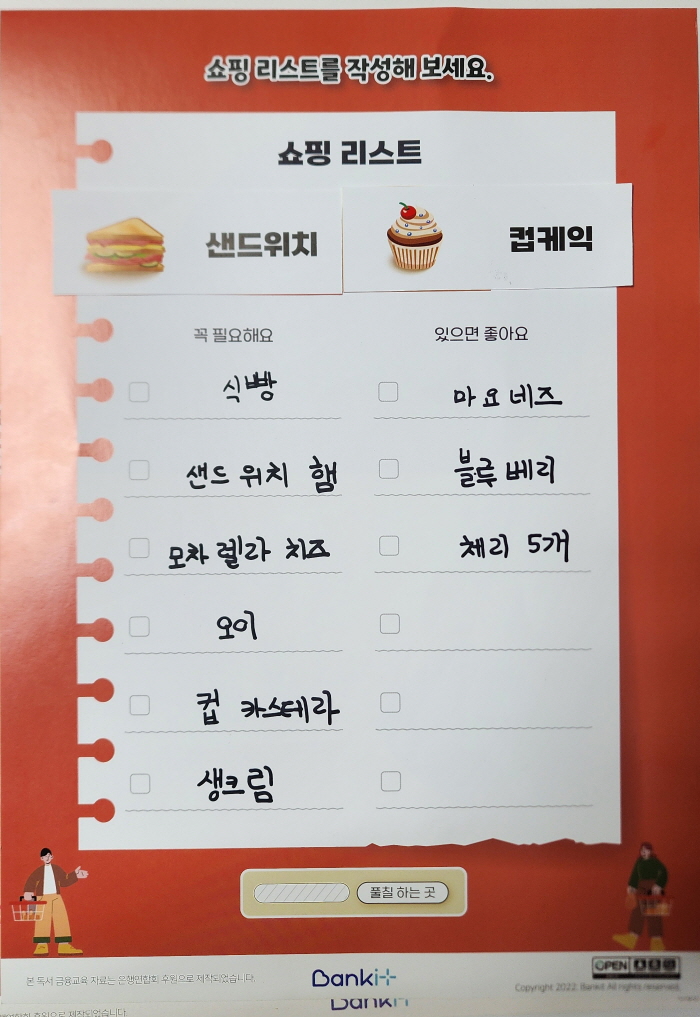 쇼핑 리스트를 작성해 보세요.
쇼핑 리스트
샌드위치
컵케익
꼭 필요해요
있으면 좋아요
식빵
마요네즈
샌드위치 햄
블루베리
모차렐라 치즈
체리 5개
오이
컵 카스테라
생크림
풀칠 하는 곳
본 독서 금융교육 자료는 은행연합회 후원으로 제작되었습니다.
Bankit
OPEN
Copyright 2022. Bankit All rights reserved.
Bankit
후원으로 제작되었습니다.